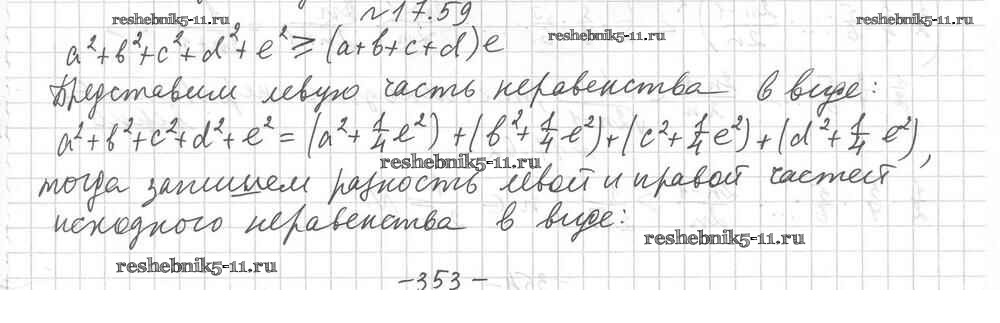 №17.59
reshebnik5-11.ru reshebnik5-11.ru
reshebnik5-11.ru
a²+b²+c²+d²+e² ≥ (a+b+c+d)e
Представим левую часть неравенства в виде:
a²+b²+c²+d²+e² = (a²+1/4 e²)+(b²+1/4 e²)+(c²+1/4 e²)+(d²+1/4 e²),
reshebnik5-11.ru
тогда запишем разность левой и правой частей
исходного неравенства в виде:
reshebnik5-11.ru
reshebnik5-11.ru
-353-